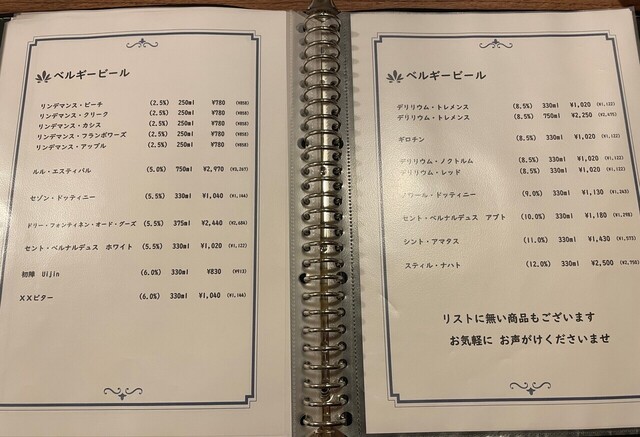 ベルギービール
リンデマンス・ピーチ (2.5%) 250ml ¥780 (¥858)
リンデマンス・クリーク (2.5%) 250ml ¥780 (¥858)
リンデマンス・カシス (2.5%) 250ml ¥780 (¥858)
リンデマンス・フランボワーズ (2.5%) 250ml ¥780 (¥858)
リンデマンス・アップル (2.5%) 250ml ¥780 (¥858)
ルル・エスティバル (5.0%) 750ml ¥2,970 (¥3,267)
セゾン・ドッティニー (5.5%) 330ml ¥1,040 (¥1,144)
ドリー・フォンティネン・オード・グーズ (5.5%) 375ml ¥2,440 (¥2,684)
セント・ベルナルデュス ホワイト (5.5%) 330ml ¥1,020 (¥1,122)
初陣 Uijin (6.0%) 330ml ¥830 (¥913)
XXビター (6.0%) 330ml ¥1,040 (¥1,144)
ベルギービール
デリリウム・トレメンス (8.5%) 330ml ¥1,020 (¥1,122)
デリリウム・トレメンス (8.5%) 750ml ¥2,250 (¥2,475)
ギロチン (8.5%) 330ml ¥1,020 (¥1,122)
デリリウム・ノクトルム (8.5%) 330ml ¥1,020 (¥1,122)
デリリウム・レッド (8.5%) 330ml ¥1,020 (¥1,122)
ノワール・ドッティニー (9.0%) 330ml ¥1,130 (¥1,243)
セント・ベルナルデュス アプト (10.0%) 330ml ¥1,180 (¥1,298)
シント・アマタス (11.0%) 330ml ¥1,430 (¥1,573)
スティル・ナハト (12.0%) 330ml ¥2,500 (¥2,750)
リストに無い商品もございます
お気軽に お声がけくださいませ